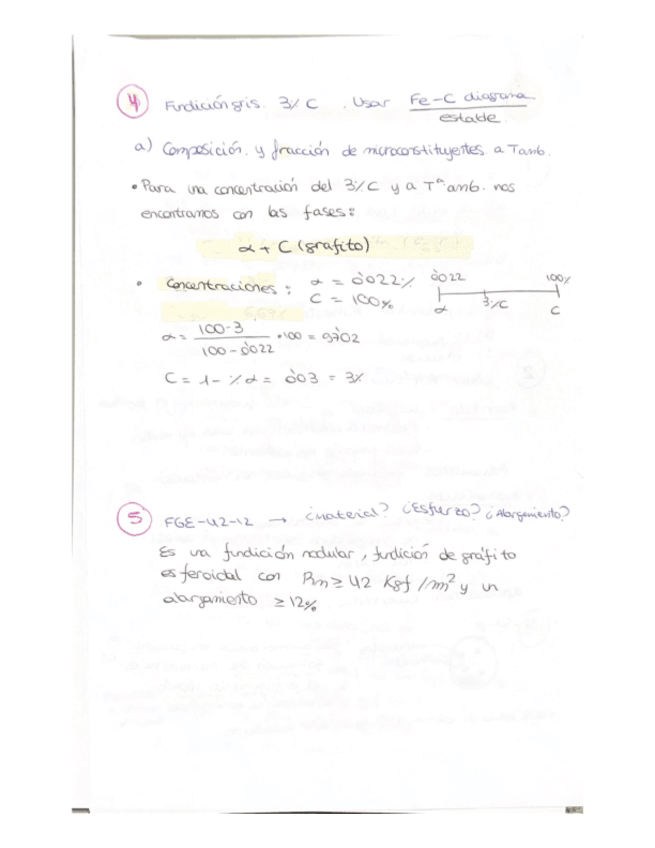 4 Fundición gris. 3% C . Usar Fe-C diagrama
estable.
a) Composición. y fracción de microconstituyentes. a Tamb.
• Para una concentración del 3%C y a Tª amb. nos
encontramos con las fases:
α + C (grafito)
• Concentraciones: α = 0'022% 0'022 100%
C = 100% α 3%C C
α = 100-3 / 100-0'022 • 100 = 97'02
C = 1- %α = 0'03 = 3%
5 FGE-42-12 → ¿material? ¿Esfuerzo? ¿Alargamiento?
Es una fundición nodular, fundición de gráfito
esferoidal con Rm ≥ 42 Kgf/m² y un
alargamiento ≥ 12%